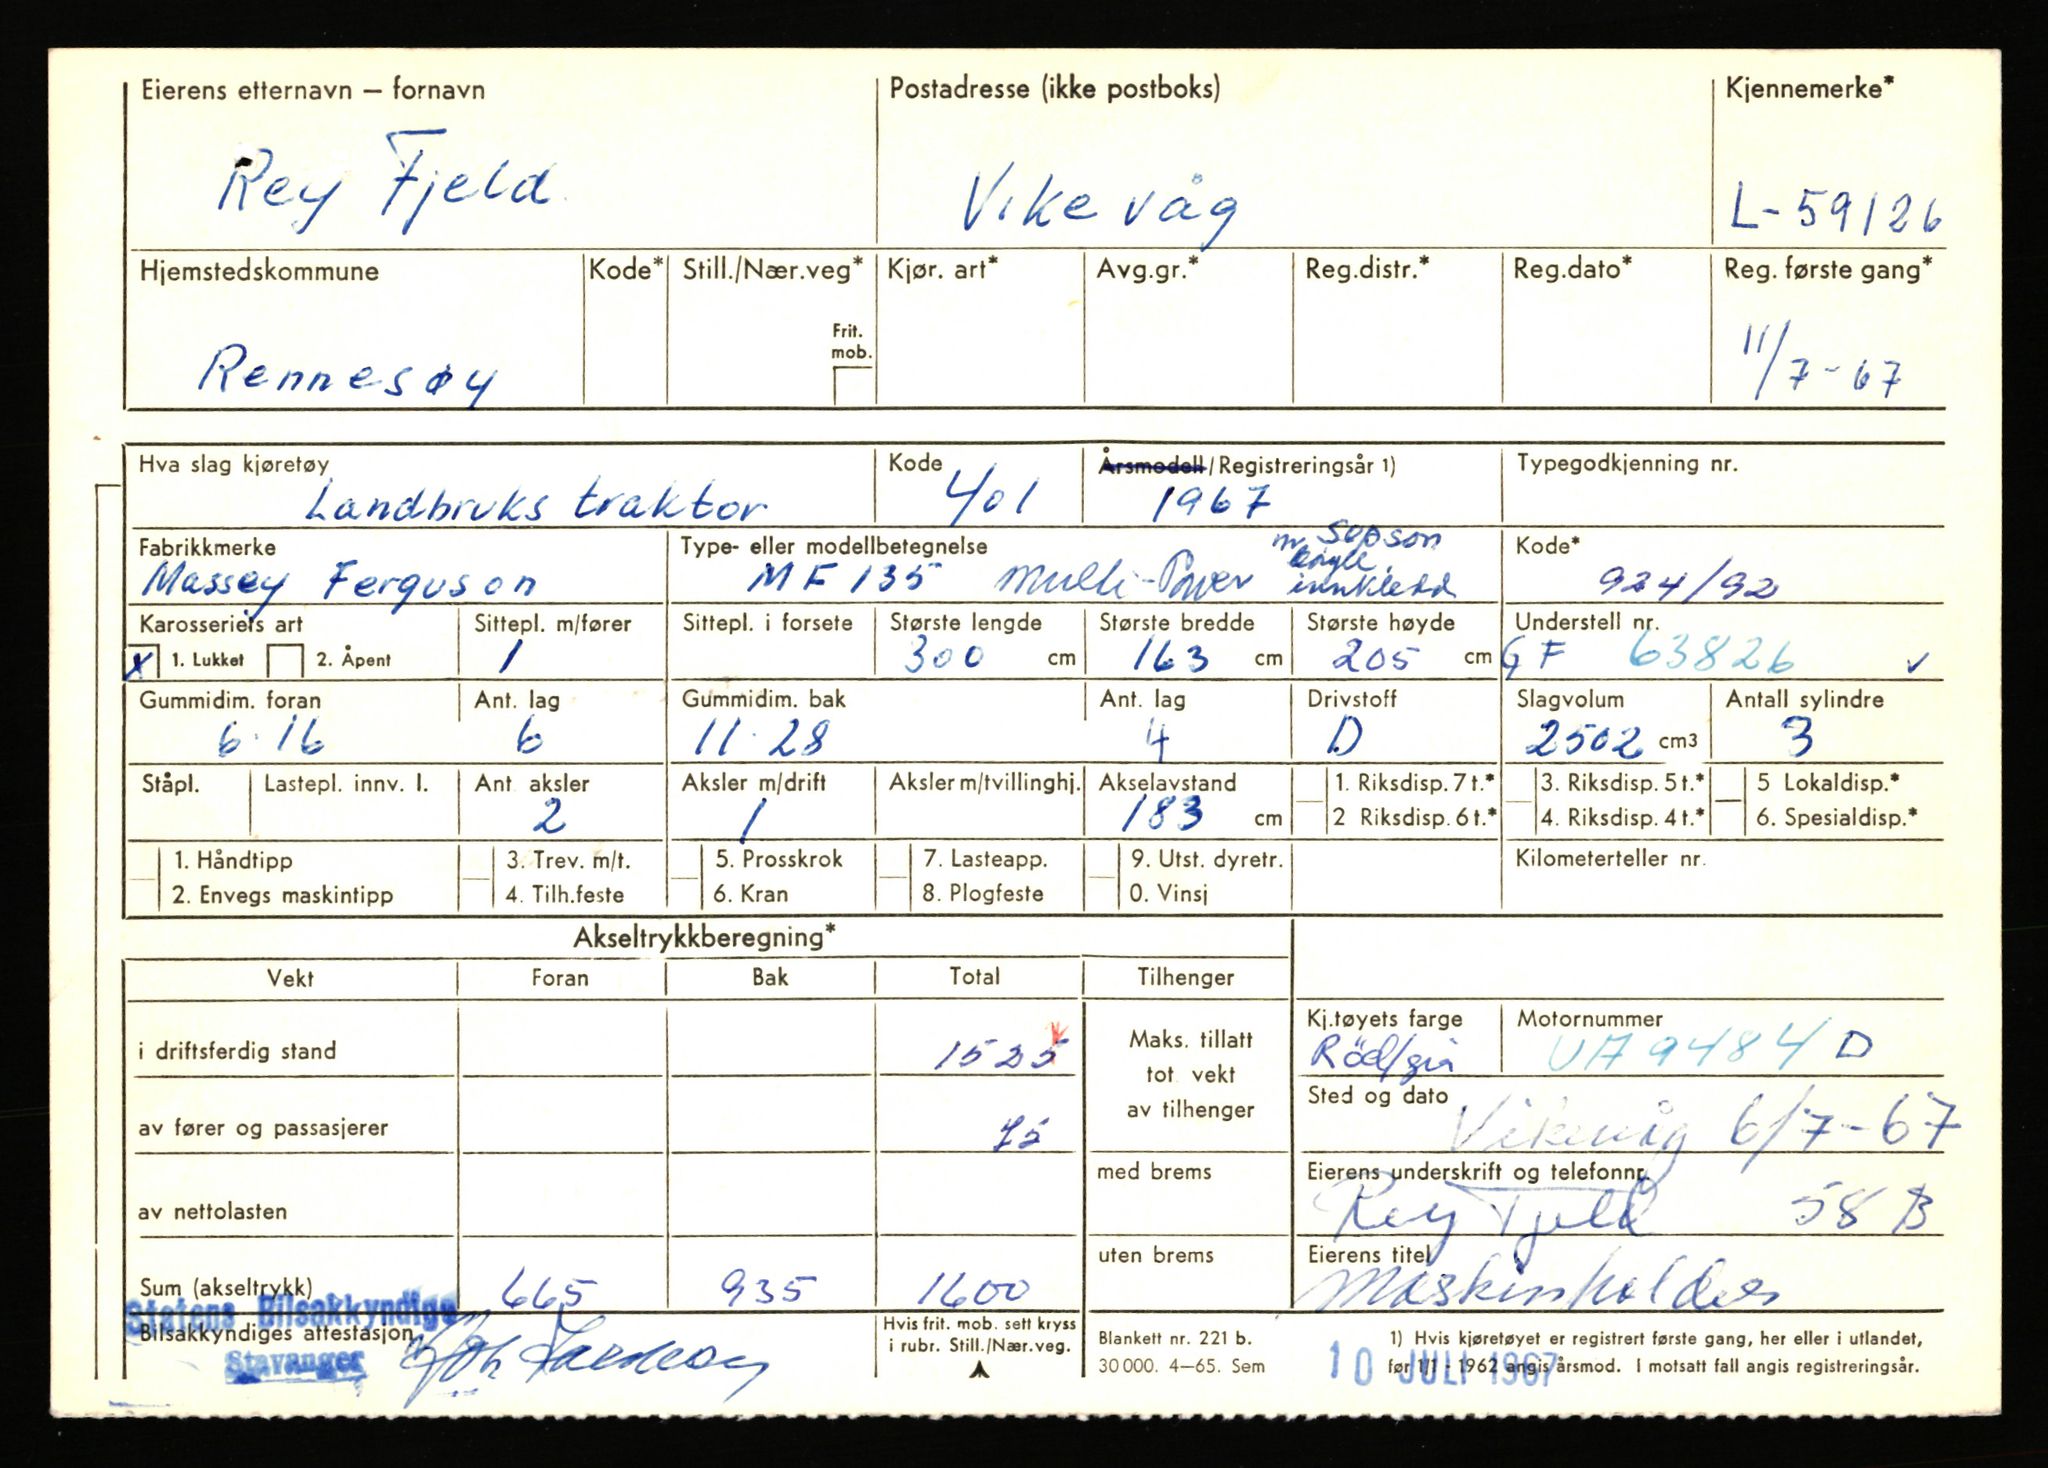 Eierens etternavn — fornavn Postadresse (ikke postboks) Kjennemerke*
Rey Fjeld Vikevåg L-59126
Hjemstedskommune Kode* Still./Nær.veg* Kjør. art* Avg.gr.* Reg.distr.* Reg.dato* Reg. første gang*
Frit.
mob.
Rennesøy 11/7-67
Hva slag kjøretøy Kode Årsmodell/Registreringsår 1) Typegodkjenning nr.
Landbruks traktor 401 1967
Fabrikkmerke Type- eller modellbetegnelse Kode*
m Sopson
bøyle
Massey Ferguson MF 135 Multi-Power innkledd 924/92
Karosseriets art Sittepl. m/fører Sittepl. i forsete Største lengde Største bredde Største høyde Understell nr.
X 1. Lukket 2. Åpent 1 300 cm 163 cm 205 cm GF 63826 ✓
Gummidim. foran Ant. lag Gummidim. bak Ant. lag Drivstoff Slagvolum Antall sylindre
6.16 6 11.28 4 D 2502 cm3 3
Ståpl. Lastepl. innv. l. Ant aksler Aksler m/drift Aksler m/tvillinghj. Akselavstand 1. Riksdisp. 7 t.* 3. Riksdisp. 5 t.* 5 Lokaldisp.*
2 1 183 cm 2 Riksdisp. 6 t.* 4. Riksdisp. 4 t.* 6. Spesialdisp.*
1. Håndtipp 3. Trev. m/t. 5. Prosskrok 7. Lasteapp. 9. Utst. dyretr. Kilometerteller nr.
2. Envegs maskintipp 4. Tilh.feste 6. Kran 8. Plogfeste 0. Vinsj
Akseltrykkberegning*
Vekt Foran Bak Total Tilhenger
i driftsferdig stand 1525
Maks. tillatt
tot vekt
av tilhenger
Kj.tøyets farge Motornummer
Rød/grå UA 9484 D
Sted og dato
av fører og passasjerer 75 Vikevåg 6/7-67
med brems Eierens underskrift og telefonnr.
av nettolasten Rey Fjeld 58 B
uten brems Eierens titel
Sum (akseltrykk) 665 935 1600 Maskinholder
Statens Bilsakkyndige
Bilsakkyndiges attestasjon
Stavanger
Hvis frit. mob. sett kryss
i rubr. Still./Nær.veg.
Blankett nr. 221 b.
30 000. 4—65. Sem
1) Hvis kjøretøyet er registrert første gang, her eller i utlandet,
før 1/1 - 1962 angis årsmod. I motsatt fall angis registreringsår.
10 JULI 1967